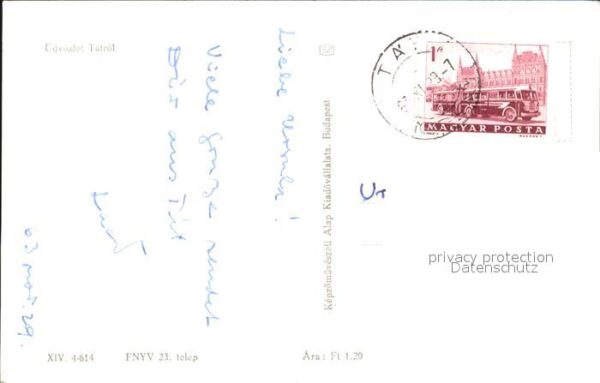 Üdvözlet Tátról
Liebe Ursula!
Viele Grüsse sendet
Dir aus Tát
63 nov. 29.
Képzőművészeti Alap Kiadóvállalata, Budapest
XIV. 4-614
FNYV 23. telep
Ára: Ft 1.20
1 Ft
MAGYAR POSTA
TÁT
privacy protection
Datenschutz